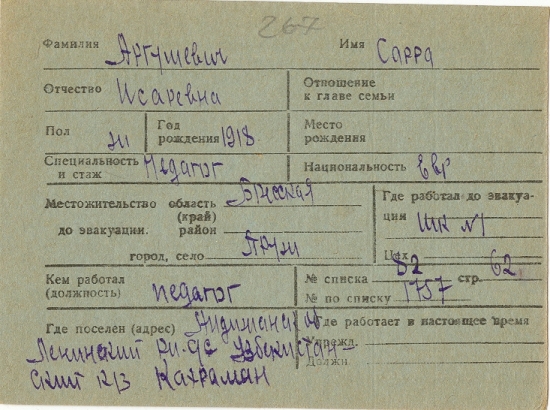 267
Фамилия Аргушевич Имя Сарра
Отчество Исаревна Отношение к главе семьи
Пол ж Год рождения 1918 Место рождения
Специальность и стаж Педагог Национальность Евр
Местожительство область Брестская Где работал до эвакуа-
(край) ции шк №1
до эвакуации. район
город, село Пруж Цех
Кем работал № списка 82 стр. 62
(должность) педагог № по списку 1757
Где поселен (адрес) Андижанск Где работает в настоящее время
Ленинский Узбекистан- Учрежд.
ский к/з Кахраман Должн.